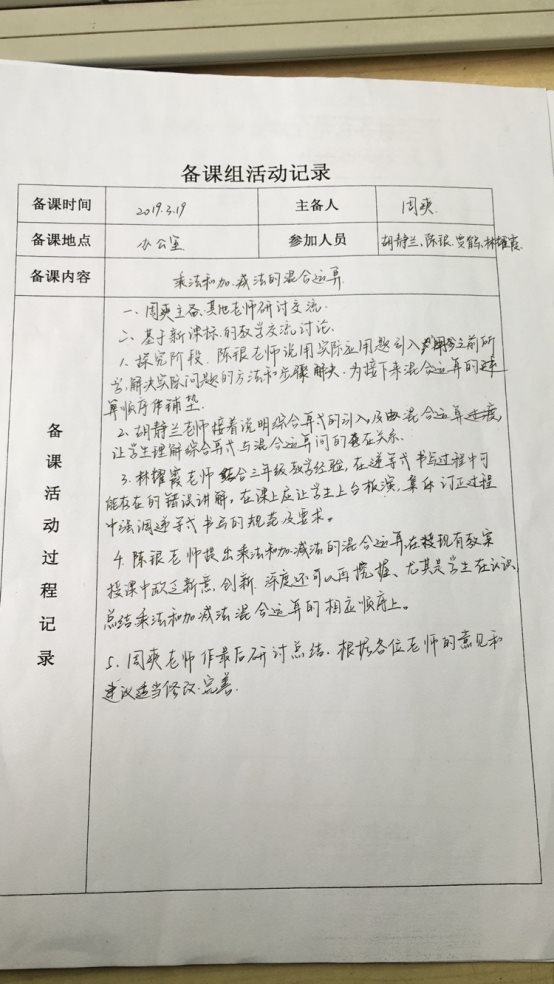 备课组活动记录
备课时间 2019.3.19 主备人 周爽
备课地点 办公室 参加人员 胡静兰、陈银、贾能、林耀霞
备课内容 乘法和加、减法的混合运算
备课活动过程记录
一、周爽主备、其他老师研讨交流.
二、基于新课标的教学交流讨论.
1、探究阶段,陈银老师说用实际应用题引入,之前所
学解决实际问题的方法和步骤解决.为接下来混合运算的
算顺序作铺垫.
2、胡静兰老师接着说明综合算式的引入,及由混合运算进度,
让学生理解综合算式与混合运算间的关系.
3、林耀霞老师结合三年级教学经验,在递等式书写过程中可
能存在的错误讲解,在课上应让学生上台板演,集体订正过程
中强调递等式书写的规范及要求。
4、陈银老师提出乘法和加减法的混合运算,在授现有教案
授课中缺乏新意,创新 深度还可以再挖掘、尤其是学生在认识、
总结乘法和加减法混合运算的相应顺序上。
5、周爽老师作最后研讨总结,根据各位老师的意见和
建议适当修改.完善.